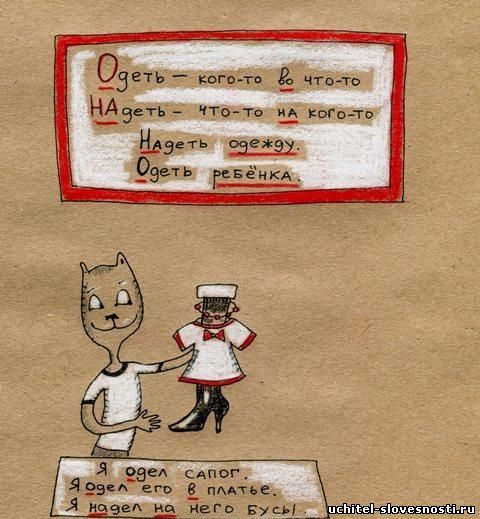 Одеть – кого-то во что-то
НАдеть – что-то на кого-то
Надеть одежду.
Одеть ребёнка.
Я одел сапог.
Я одел его в платье.
Я надел на него бусы.
uchitel-slovesnosti.ru